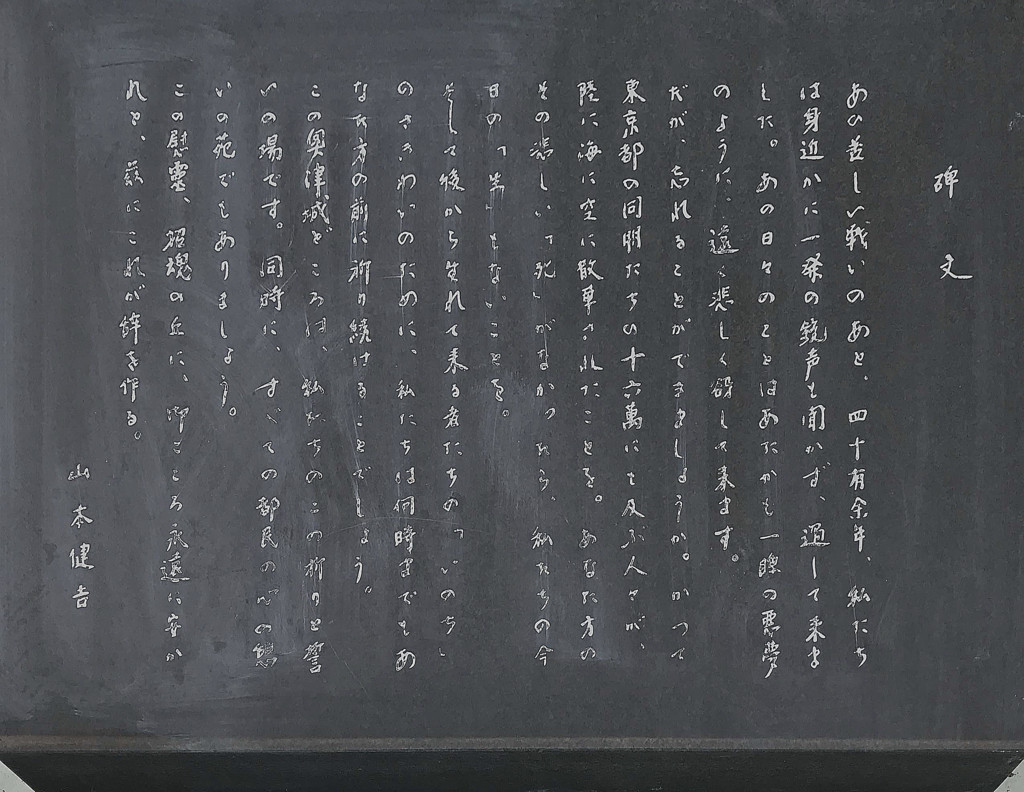 碑文
あの苦しい戦いのあと、四十有余年、私たち
は身近かに一発の銃声も聞かず、過して来ま
した。あの日々のことはあたかも一瞬の悪夢
のように、遠く悲しく谺して来ます。
だが、忘れることができましょうか。かつて
東京都の同胞たちの十六萬にも及ぶ人々が、
陸に海に空に散華されたことを。あなた方の
その悲しい「死」がなかったら、私たちの今
日の「生」もないことを。
そして後から生れて来る者たちの「いのち」
のさきわいのために、私たちは何時までもあ
なた方の前に祈り続けることでしょう。
この奥津城どころは、私たちのこの祈りと誓
いの場です。同時に、すべての都民の心の憩
いの苑でもありましょう。
この慰霊、招魂の丘に、御こころ永遠に安か
れと、茲にこれが辞を作る。
山本健吉